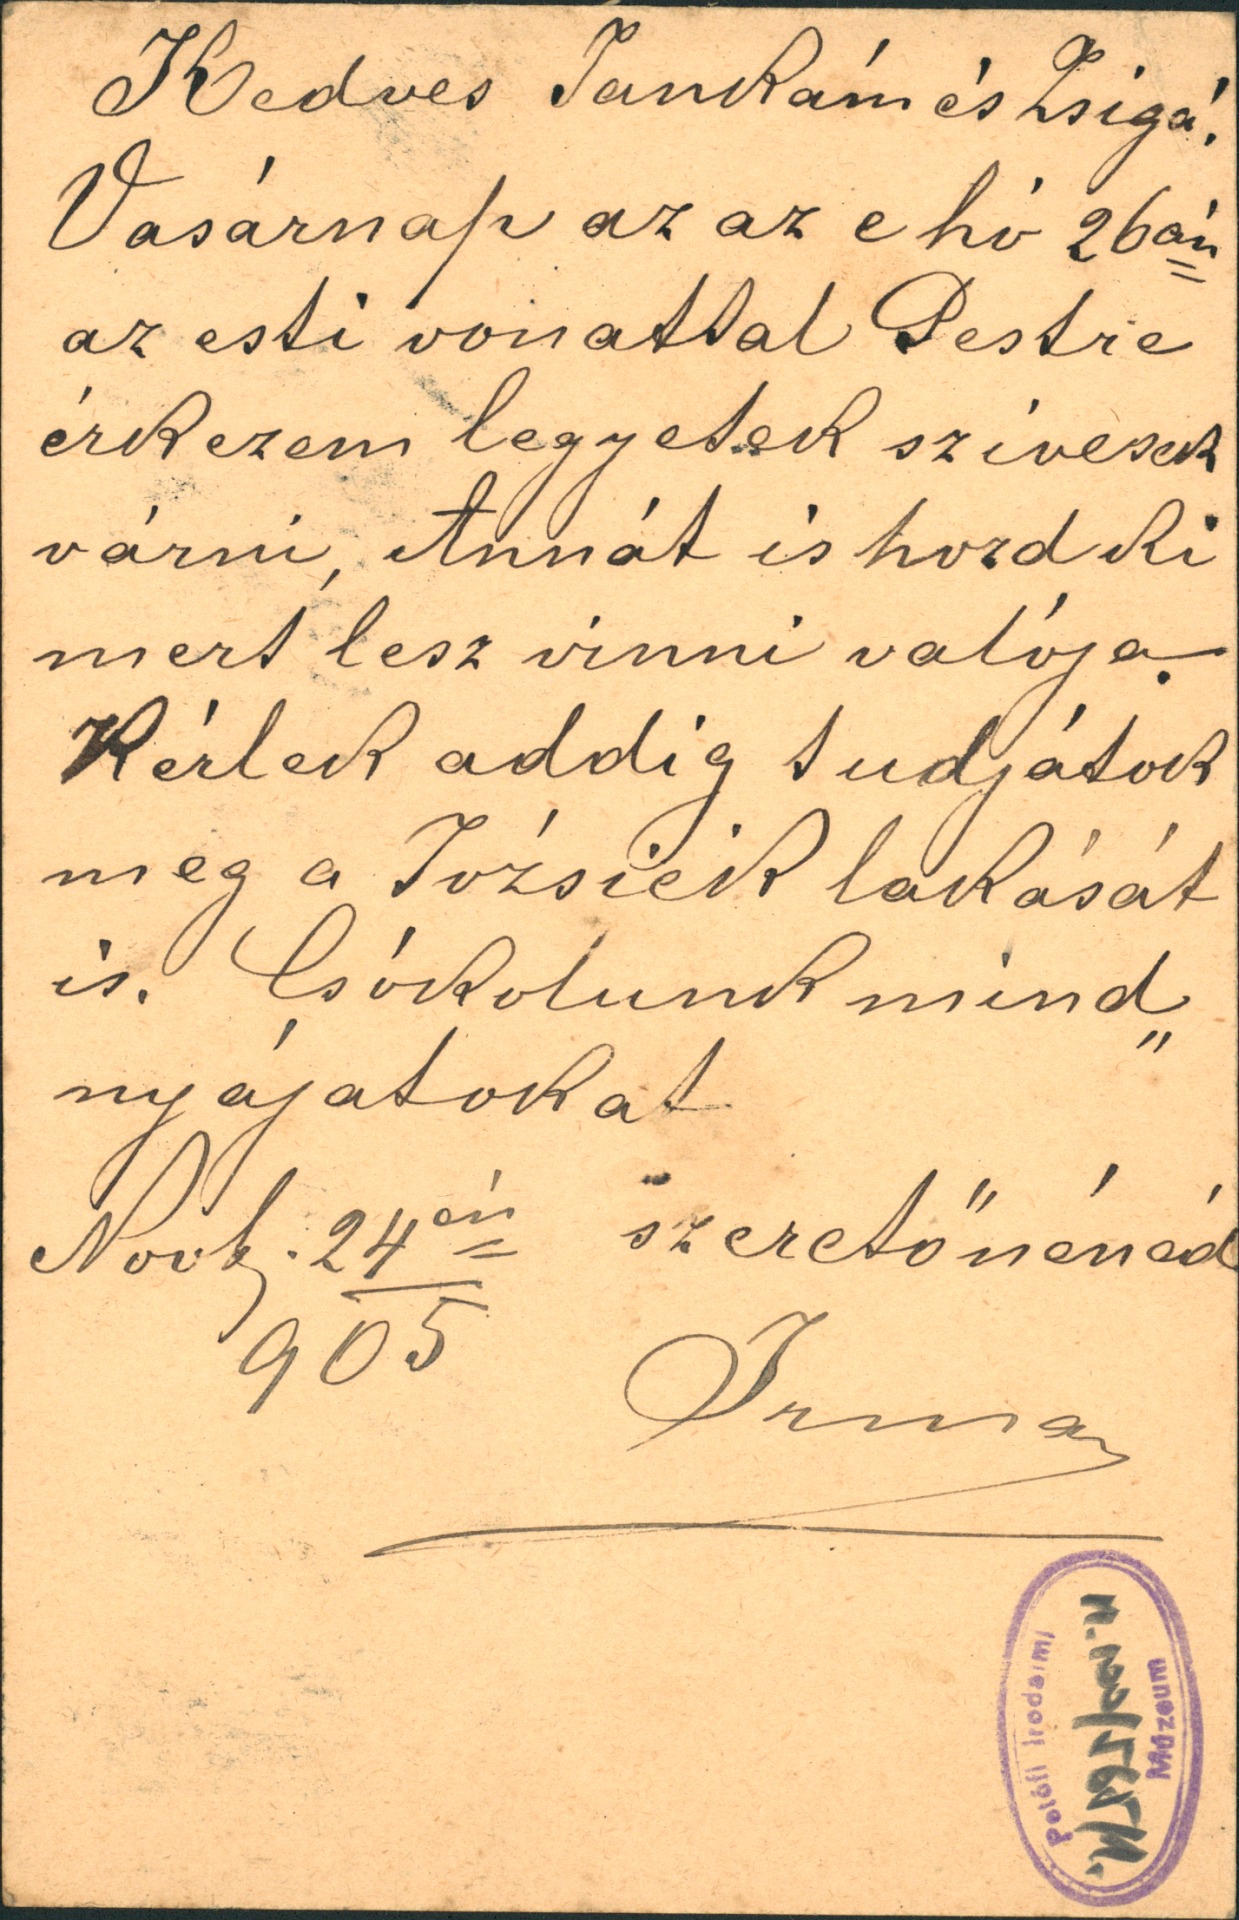 Kedves Jankám és Zsiga!
Vasárnap az az e hó 26án
az esti vonattal Pestre
érkezem legyetek szivesek
várni, Annát is hozd ki
mert lesz vinni valója.
Kérlek addig tudjátok
meg a Józsiék lakását
is. Csókolunk mind„
nyájatokat
szerető nénéd
Novb. 24én
905
Irma
Petőfi Irodalmi
Múzeum